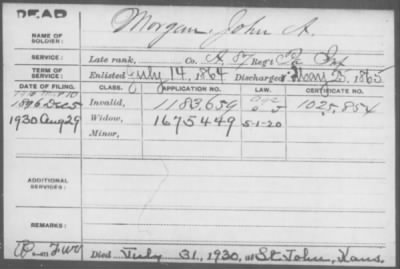 DEAD
NAME OF SOLDIER: Morgan, John A.
SERVICE: Late rank, Co. A. 87 Reg't Pa Inf
TERM OF SERVICE: Enlisted July 14, 1864 Discharged May 23, 1865
DATE OF FILING. CLASS. APPLICATION NO. LAW. CERTIFICATE NO.
1896 Dec 5 Invalid, 1183,659 1025,854
1930 Aug 29 Widow, 1675449 5-1-20
Minor,
ADDITIONAL SERVICES:
REMARKS:
Died July 31, 1930, at St John, Kans.